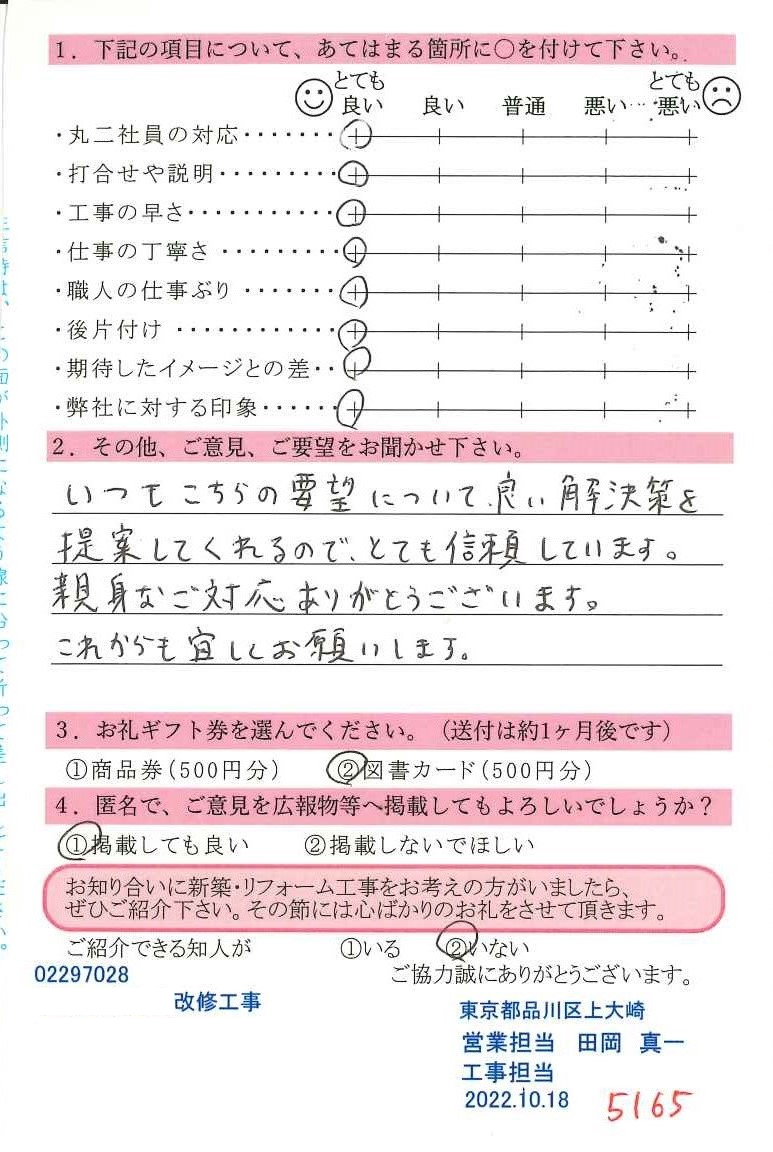 1．下記の項目について、あてはまる箇所に○を付けて下さい。
とても良い 良い 普通 悪い とても悪い
・丸二社員の対応・・・・・・・
・打合せや説明・・・・・・・・・
・工事の早さ・・・・・・・・・・・
・仕事の丁寧さ・・・・・・・・・
・職人の仕事ぶり・・・・・・・
・後片付け・・・・・・・・・・・・
・期待したイメージとの差・・
・弊社に対する印象・・・・・・
2．その他、ご意見、ご要望をお聞かせ下さい。
いつもこちらの要望について、良い解決策を
提案してくれるので、とても信頼しています。
親身なご対応ありがとうございます。
これからも宜しくお願いします。
3．お礼ギフト券を選んでください。（送付は約1ヶ月後です）
①商品券（500円分） ②図書カード（500円分）
4．匿名で、ご意見を広報物等へ掲載してもよろしいでしょうか？
①掲載しても良い ②掲載しないでほしい
お知り合いに新築・リフォーム工事をお考えの方がいましたら、
ぜひご紹介下さい。その節には心ばかりのお礼をさせて頂きます。
ご紹介できる知人が ①いる ②いない
ご協力誠にありがとうございます。
02297028
改修工事
東京都品川区上大崎
営業担当 田岡 真一
工事担当
2022.10.18
5165